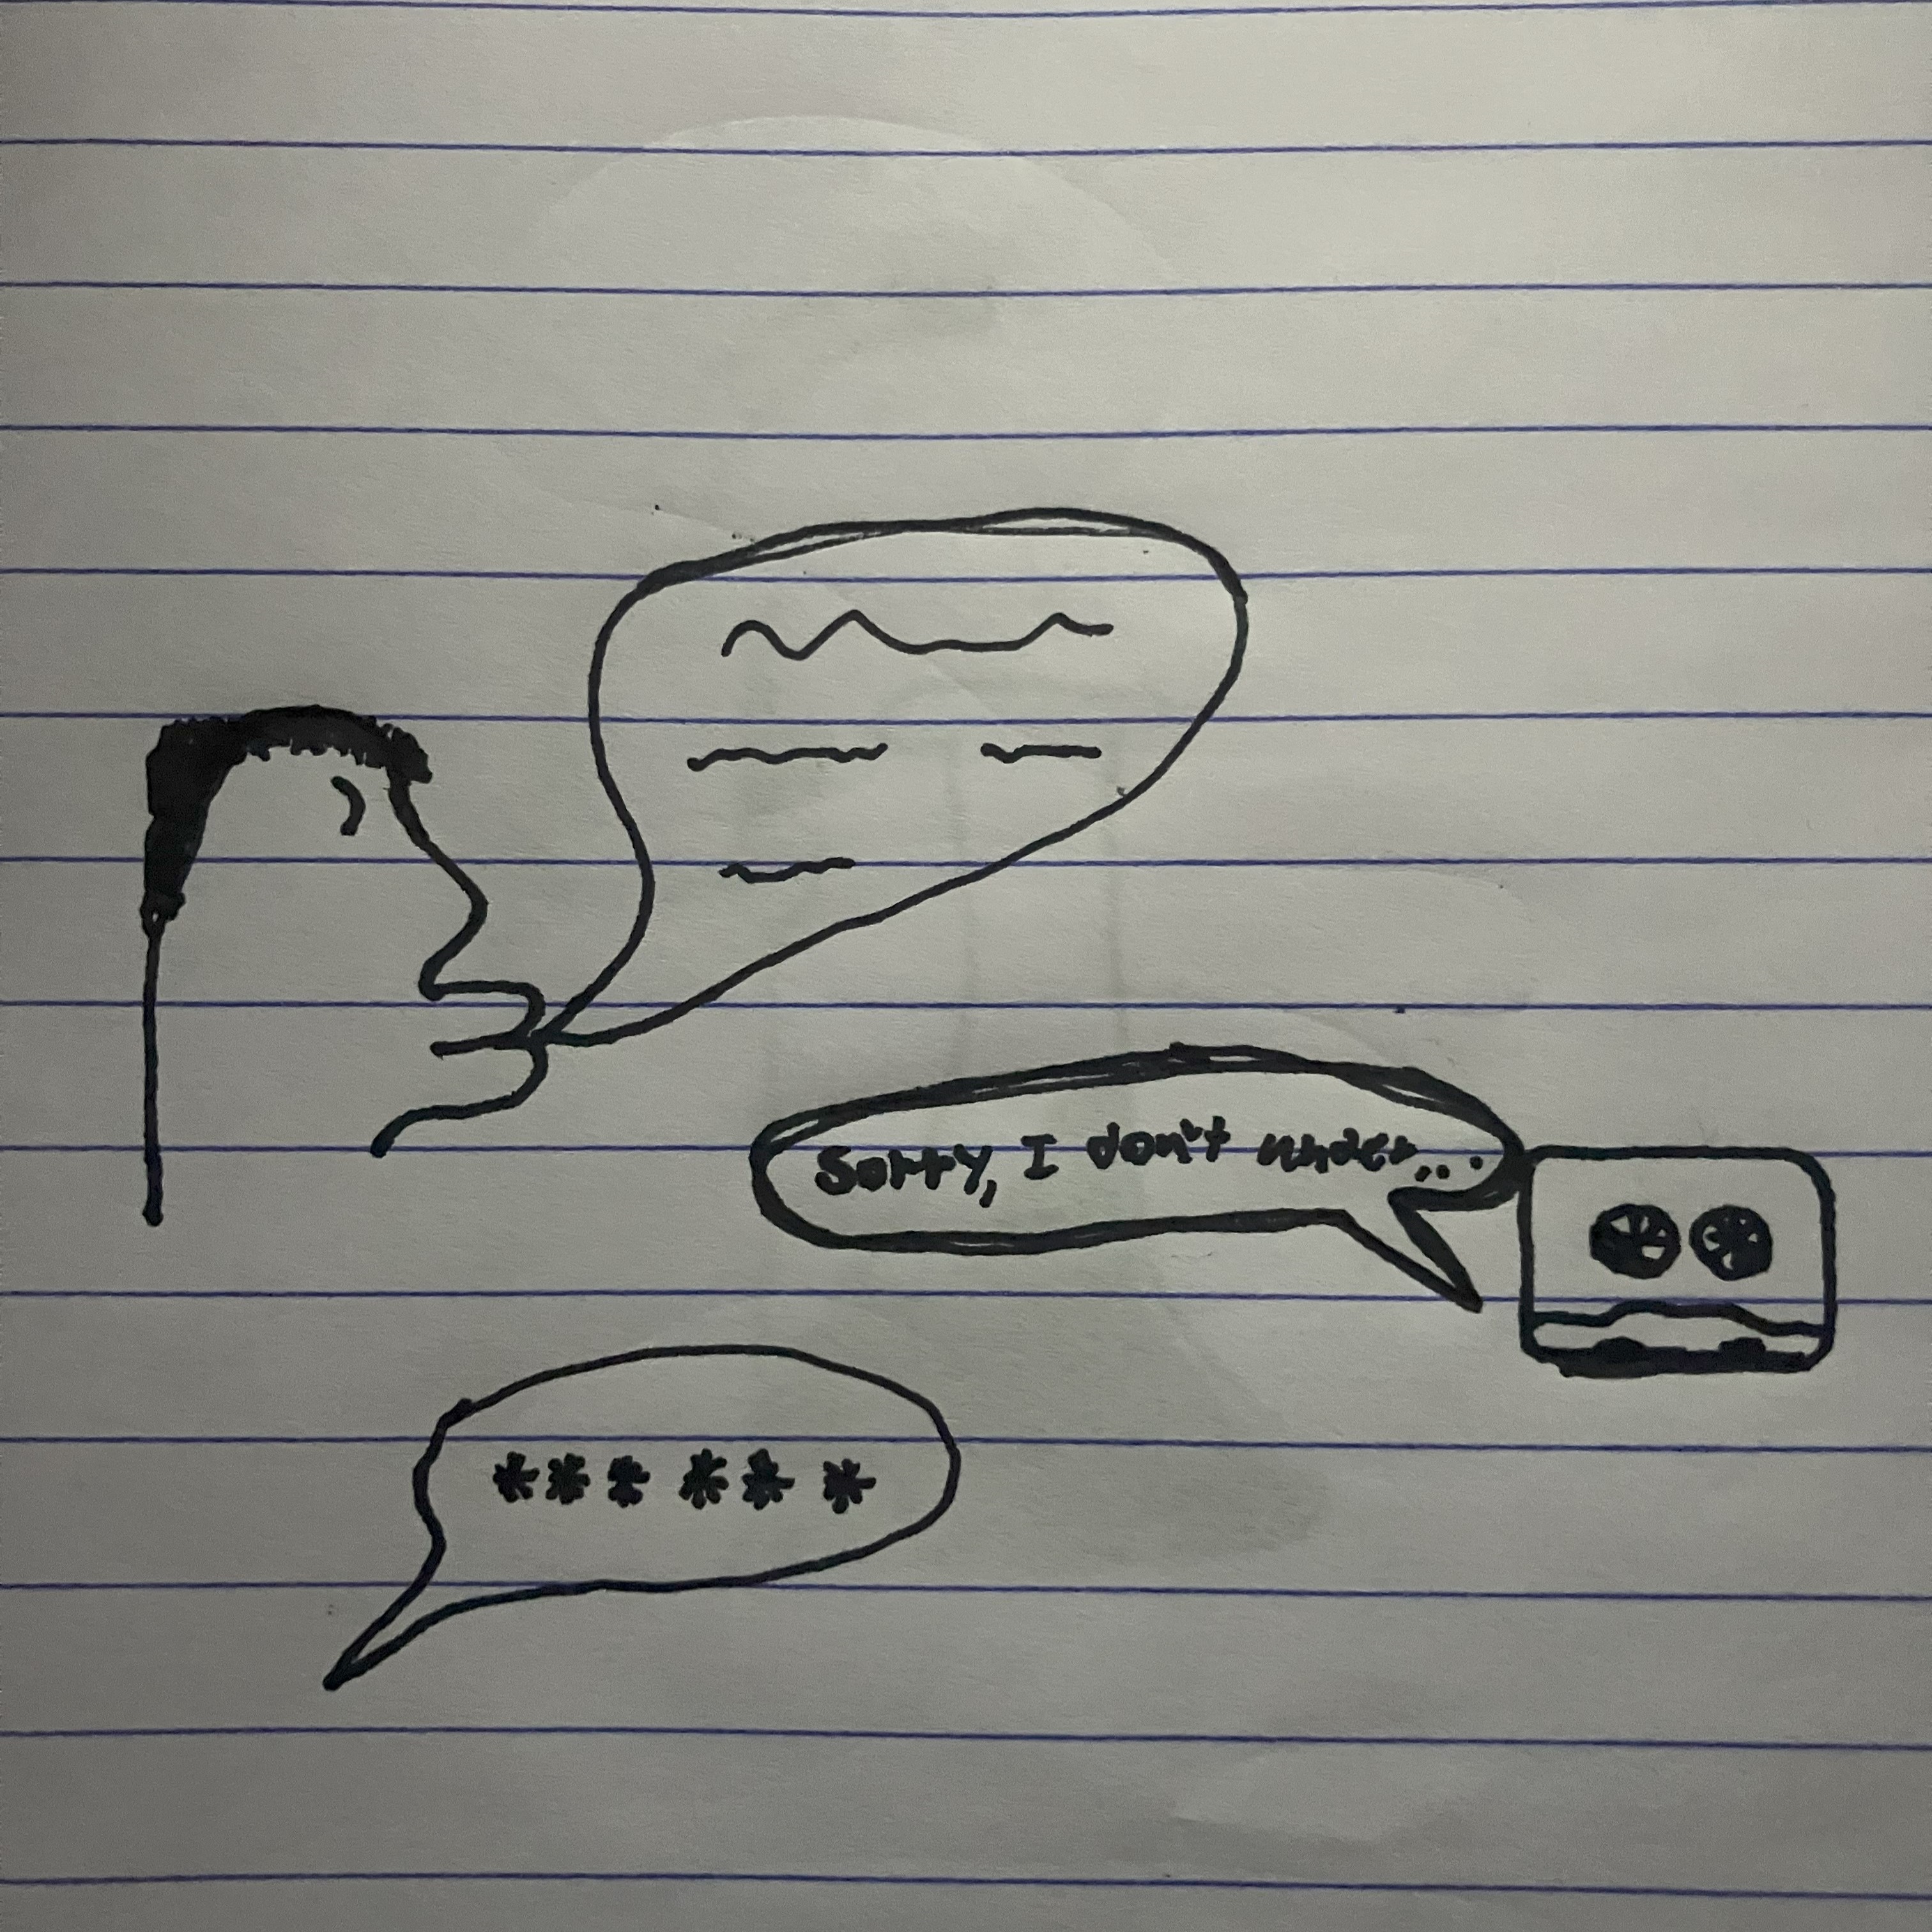 Sorry, I don't under...
******